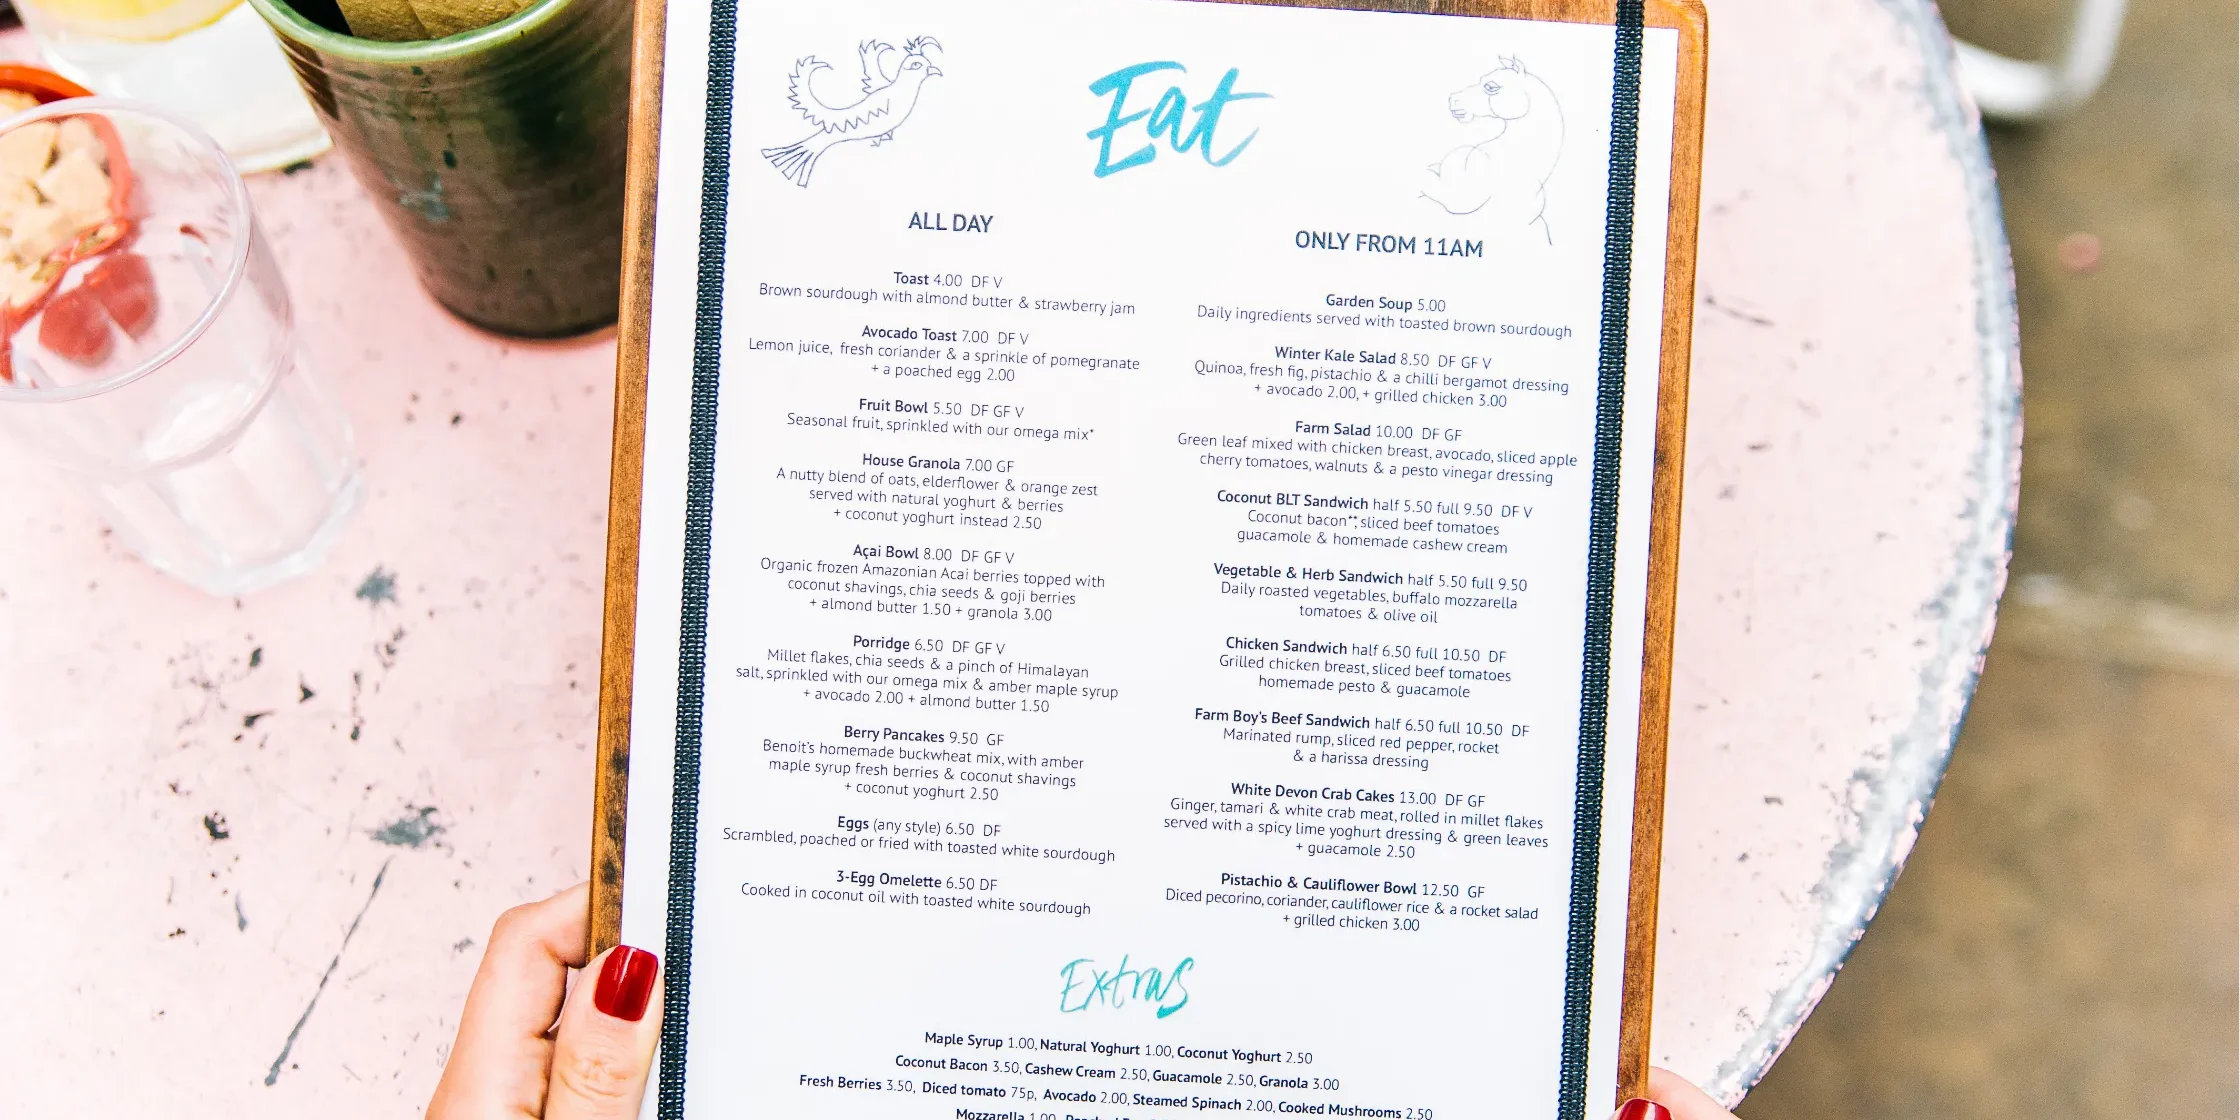 Eat
ALL DAY
Toast 4.00 DF V
Brown sourdough with almond butter & strawberry jam
Avocado Toast 7.00 DF V
Lemon juice, fresh coriander & a sprinkle of pomegranate
+ a poached egg 2.00
Fruit Bowl 5.50 DF GF V
Seasonal fruit, sprinkled with our omega mix*
House Granola 7.00 GF
A nutty blend of oats, elderflower & orange zest
served with natural yoghurt & berries
+ coconut yoghurt instead 2.50
Açai Bowl 8.00 DF GF V
Organic frozen Amazonian Acai berries topped with
coconut shavings, chia seeds & goji berries
+ almond butter 1.50 + granola 3.00
Porridge 6.50 DF GF V
Millet flakes, chia seeds & a pinch of Himalayan
salt, sprinkled with our omega mix & amber maple syrup
+ avocado 2.00 + almond butter 1.50
Berry Pancakes 9.50 GF
Benoit's homemade buckwheat mix, with amber
maple syrup fresh berries & coconut shavings
+ coconut yoghurt 2.50
Eggs (any style) 6.50 DF
Scrambled, poached or fried with toasted white sourdough
3-Egg Omelette 6.50 DF
Cooked in coconut oil with toasted white sourdough
ONLY FROM 11AM
Garden Soup 5.00
Daily ingredients served with toasted brown sourdough
Winter Kale Salad 8.50 DF GF V
Quinoa, fresh fig, pistachio & a chilli bergamot dressing
+ avocado 2.00, + grilled chicken 3.00
Farm Salad 10.00 DF GF
Green leaf mixed with chicken breast, avocado, sliced apple
cherry tomatoes, walnuts & a pesto vinegar dressing
Coconut BLT Sandwich half 5.50 full 9.50 DF V
Coconut bacon**, sliced beef tomatoes
guacamole & homemade cashew cream
Vegetable & Herb Sandwich half 5.50 full 9.50
Daily roasted vegetables, buffalo mozzarella
tomatoes & olive oil
Chicken Sandwich half 6.50 full 10.50 DF
Grilled chicken breast, sliced beef tomatoes
homemade pesto & guacamole
Farm Boy's Beef Sandwich half 6.50 full 10.50 DF
Marinated rump, sliced red pepper, rocket
& a harissa dressing
White Devon Crab Cakes 13.00 DF GF
Ginger, tamari & white crab meat, rolled in millet flakes
served with a spicy lime yoghurt dressing & green leaves
+ guacamole 2.50
Pistachio & Cauliflower Bowl 12.50 GF
Diced pecorino, coriander, cauliflower rice & a rocket salad
+ grilled chicken 3.00
Extras
Maple Syrup 1.00, Natural Yoghurt 1.00, Coconut Yoghurt 2.50
Coconut Bacon 3.50, Cashew Cream 2.50, Guacamole 2.50, Granola 3.00
Fresh Berries 3.50, Diced tomato 75p, Avocado 2.00, Steamed Spinach 2.00, Cooked Mushrooms 2.50
Mozzarella 1.00,